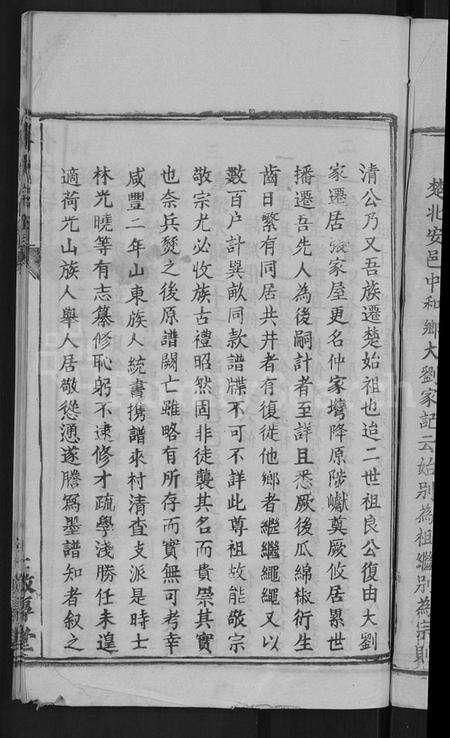 楚北安邑中和鄉大劉家記云始別為祖繼別為宗則
清公乃又吾族遷楚始祖也迨二世祖良公復由大劉
家遷居張家屋更名仲家塆降原陟巘奠厥攸居累世
播遷吾先人為後嗣計者至詳且悉厥後瓜綿椒衍生
齒日繁有同居共井者有復徙他鄉者繼繼繩繩又以
數百户計異畝同款譜牒不可不詳此尊祖故能敬宗
敬宗尤必收族古禮昭然固非徒襲其名而貴崇其實
也奈兵燹之後原譜闕亡雖略有所存而實無可考幸
咸豐二年山東族人統書携譜來村清查支派是時士
林光曉等有志纂修恥躬不逮修才疏學淺勝任未遑
適荷光山族人舉人居敬慫慂遂謄寫墨譜知者叙之